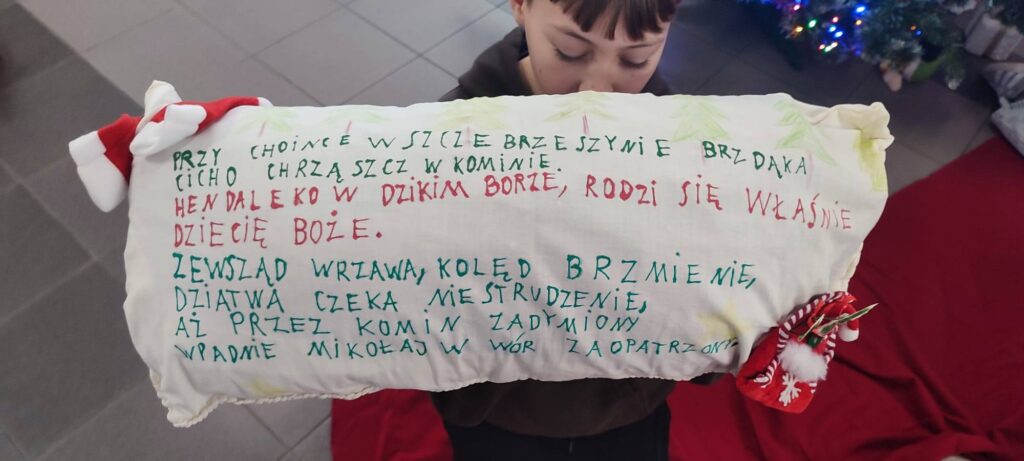 PRZY CHOINCE W SZCZEBRZESZYNIE BRZDĄKA
CICHO CHRZĄSZCZ W KOMINIE.
HEN DALEKO W DZIKIM BORZE, RODZI SIĘ WŁAŚNIE
DZIECIĘ BOŻE.
ZEWSZĄD WRZAWA, KOLĘD BRZMIENIE,
DZIATWA CZEKA NIESTRUDZENIE,
AŻ PRZEZ KOMIN ZADYMIONY
WPADNIE MIKOŁAJ W WÓR ZAOPATRZONY.